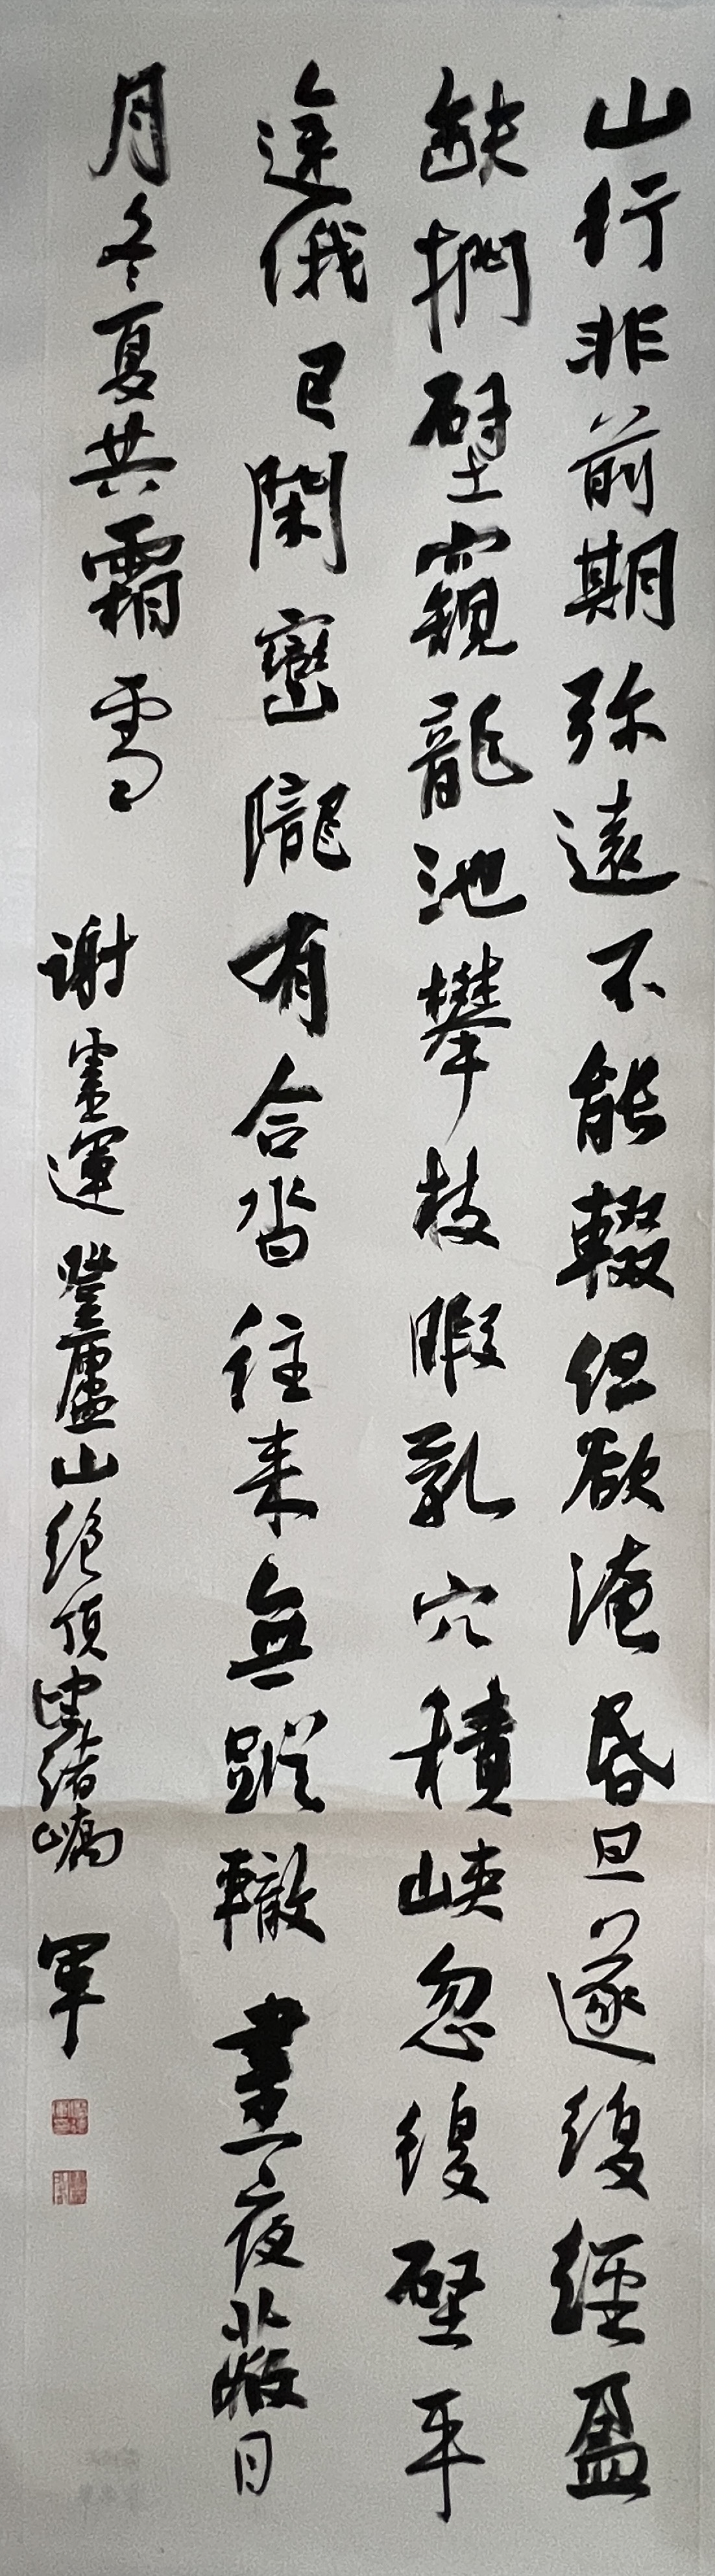 山行非前期弥遠不能輟但欲淹昏旦遂復經盈
缺捫壁窺龍池攀枝瞰乳穴積峽忽復啓平
途俄已閉巒隴有合沓往来無蹤轍晝夜蔽日
月冬夏共霜雪
謝霊運登廬山絕頂望諸嶠 軍